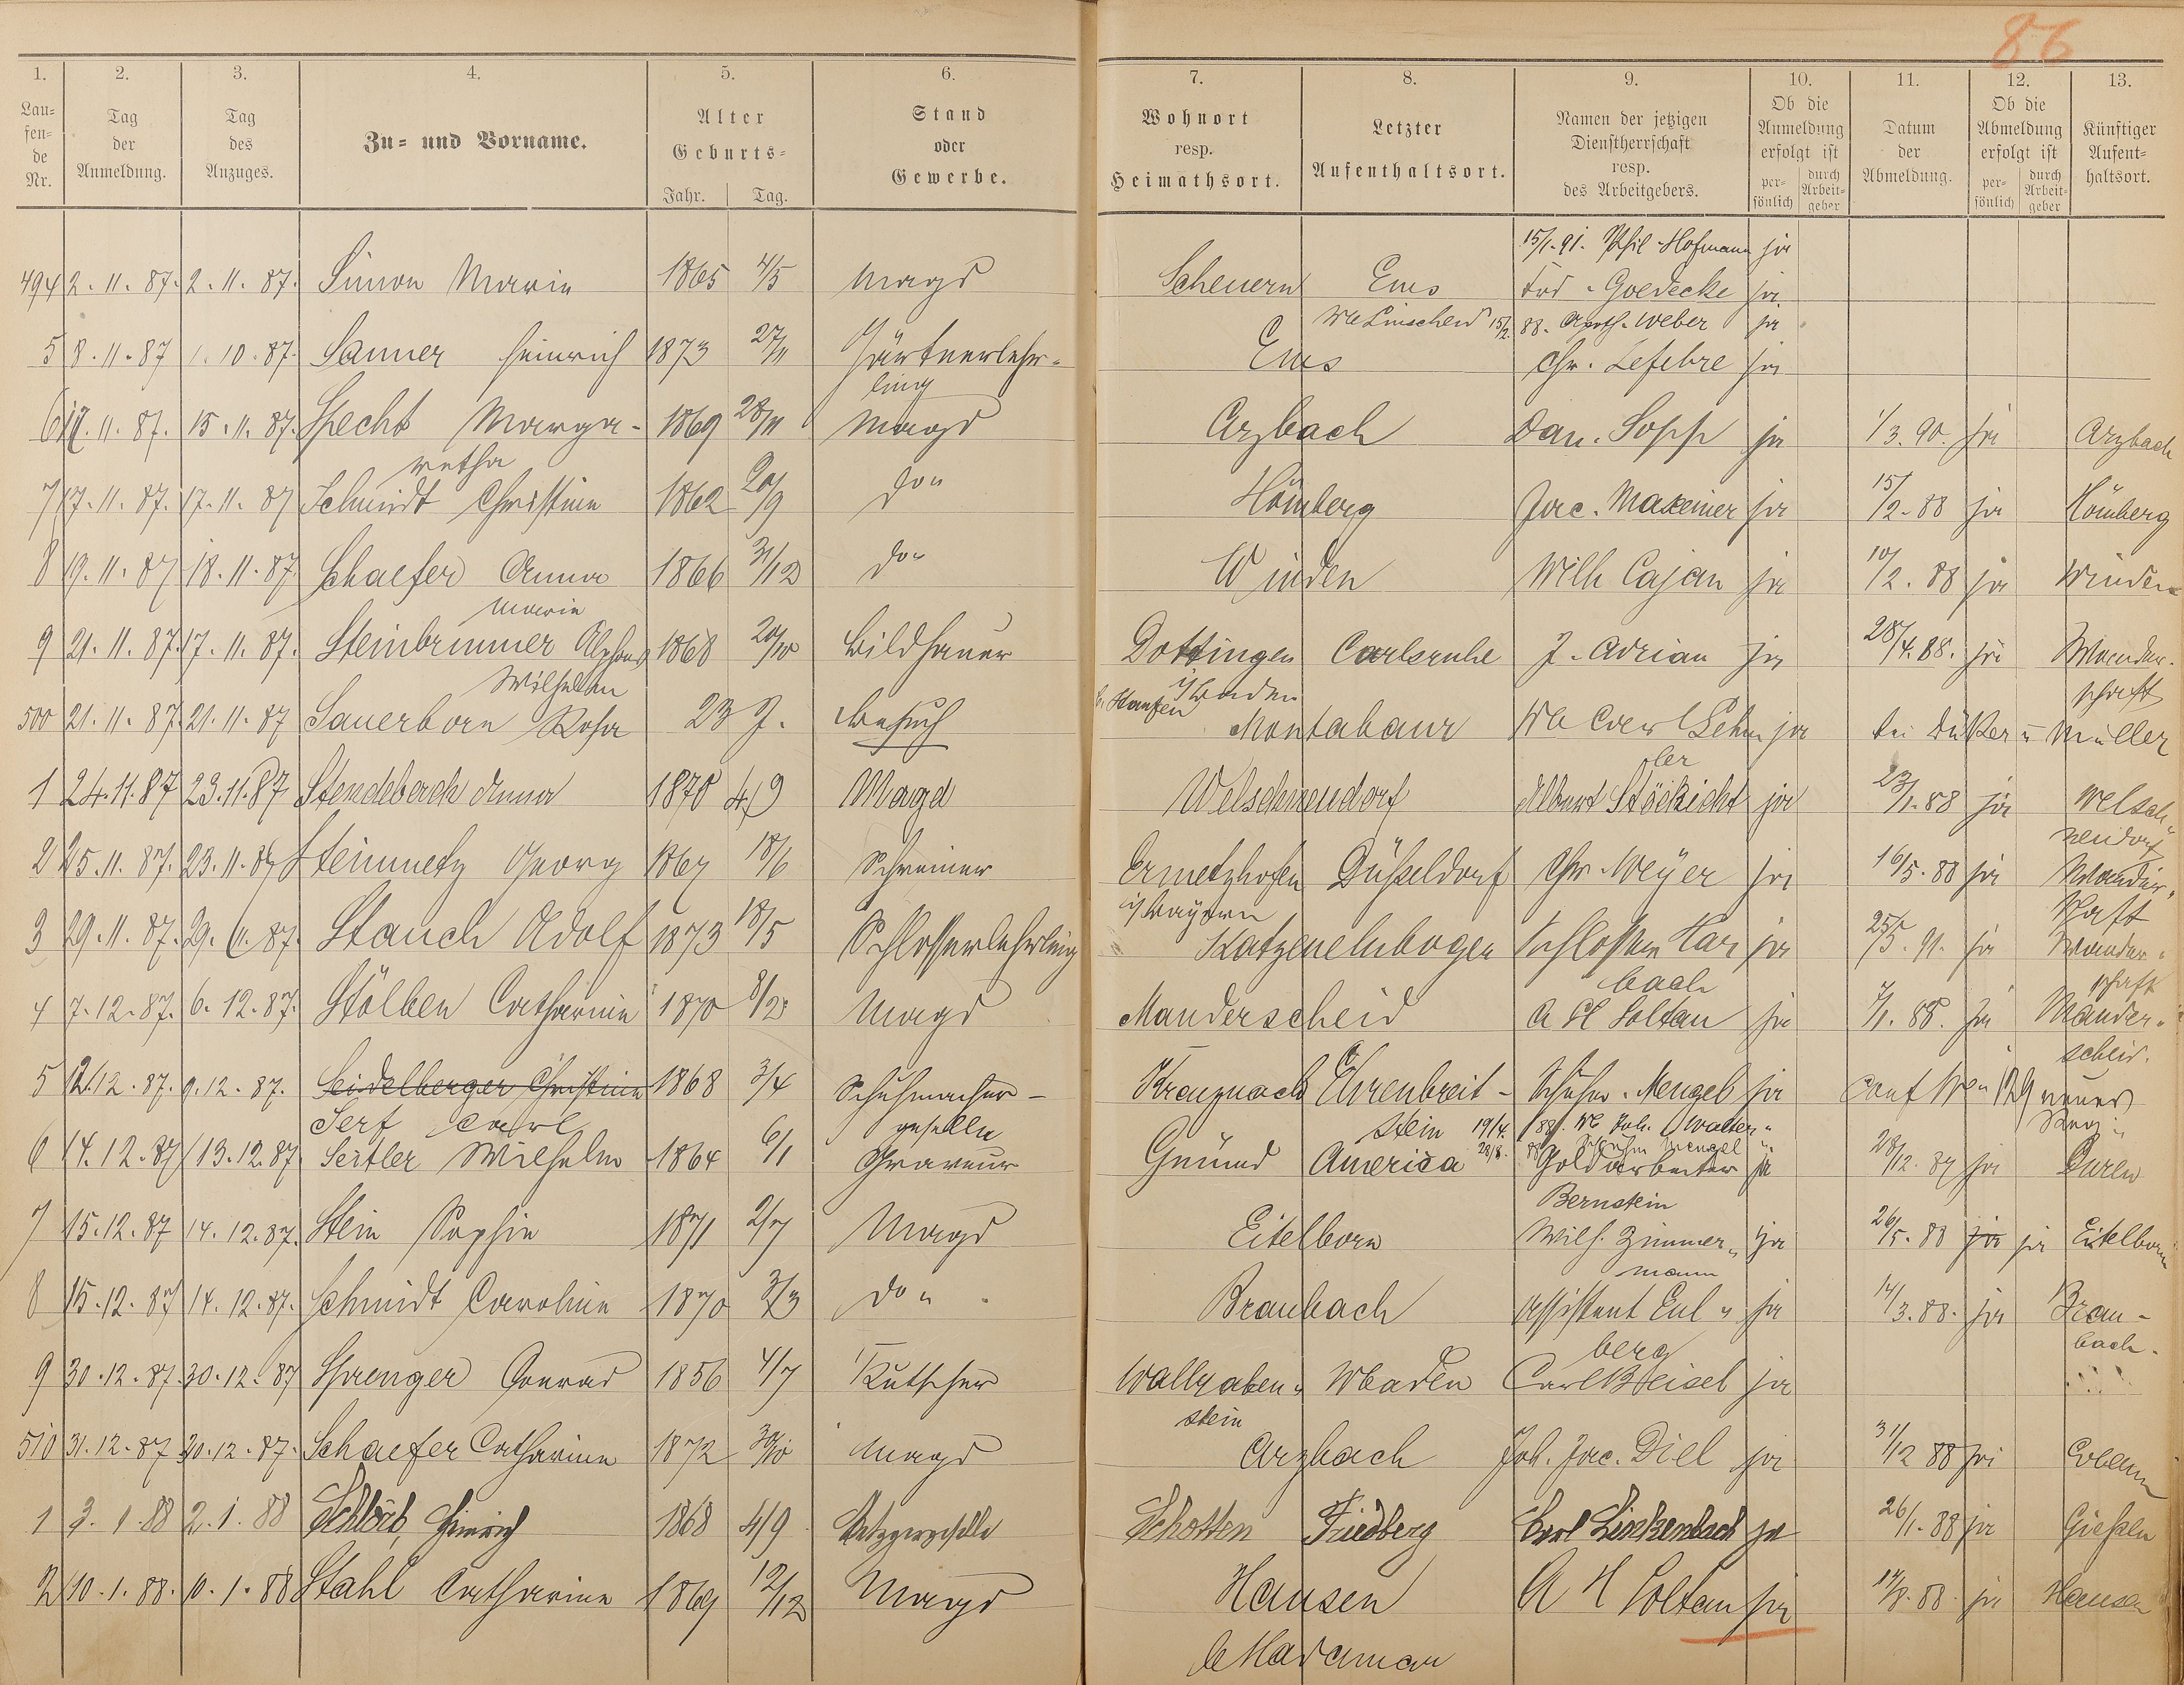 86
1. 2. 3. 4. 5. 6. 7. 8. 9. 10. 11. 12. 13.
Lau-
fen-
de
Nr.
Tag
der
Anmeldung.
Tag
des
Anzuges.
Zu- und Vorname.
Alter
Geburts-
Jahr. Tag.
Stand
oder
Gewerbe.
Wohnort
resp.
Heimathsort.
Letzter
Aufenthaltsort.
Namen der jetzigen
Dienstherrschaft
resp.
des Arbeitgebers.
Ob die
Anmeldung
erfolgt ist
per-
sönlich
durch
Arbeit-
geber
Datum
der
Abmeldung.
Ob die
Abmeldung
erfolgt ist
per-
sönlich
durch
Arbeit-
geber
Künftiger
Aufent-
haltsort.
15/1.91. Phil Hofmann ja
494 2.11.87. 2.11.87. Simon Marie 1865 4/5 Magd Scheuern Ems Frd. Goedecke ja
We Linscheid 15/2. 88. Apoth. Weber ja
5 8.11.87 1.10.87. Sanner Heinrich 1873 27/11 Gärtnerlehr-
ling Ems Chr. Lefebre ja
6 17.11.87. 15.11.87. Specht Marga-
retha 1869 28/11 Magd Arzbach Dan. Sopp ja 1/3.90. ja Arzbach
7 17.11.87. 17.11.87 Schmidt Christine 1862 20/9 do " Hömberg Jac. Maxeiner ja 15/2.88 ja Hömberg
8 19.11.87 18.11.87 Schaefer Anna
Marie 1866 31/12 do " Winden Wilh Cajan ja 10/2.88 ja Winden
9 21.11.87. 17.11.87. Steinbrunner Alphons
Wilhelm 1868 20/10 Bildhauer Dottingen
i/ Baden
b. Staufen Carlsruhe J. Adrian ja 28/4.88. ja Wander-
schaft
500 21.11.87. 21.11.87 Sauerborn Rosa 23 J. Besuch Montabaur We Carl ja bei Düker u Müller
1 24.11.87 23.11.87 Stendebach Anna 1870 4/9 Magd Welschneudorf Albert Stöckicht ja 23/1.88 ja Welsch"
neudorf
2 25.11.87. 23.11.87 Steinmetz Georg 1867 18/6 Schreiner Ermetzhofen
i/ Bayern Düsseldorf Chr. Meyer ja 16/5.88 ja Wander"
schaft
3 29.11.87. 29.6.87. Stauch Adolf 1873 18/5 Schlosserlehrling Katzenelnbogen Schlosser Har
bach ja 25/5.91. ja Wander"
schaft
4 7.12.87. 6.12.87. Stölben Catharine 1870 8/2 Magd Manderscheid A H Soltau ja 7/1.88. ja Mander"
scheid.
5 12.12.87. 9.12.87. Seidelberger Christine
Serf Carl 1868 3/4 Schuhmacher-
geselle Kreuznach Ehrenbreit-
stein Schuhm. Mengel ja
19/4. 88. We Joh. Walter"
28/8. 88 Schuhm Mengel "
6 14.12.87 13.12.87 Seitler Wilhelm 1864 6/1 Graveur Gmünd America Goldarbeiter
Bernstein ja 28/12.87 ja Düren
7 15.12.87 14.12.87. Stein Sophie 1871 2/7 Magd Eitelborn Wilh. Zimmer"
mann ja 26/5.88 ja ja Eitelborn
8 15.12.87 14.12.87. Schmidt Caroline 1870 3/3 do " Braubach Assistent Eul"
berg ja 14/3.88. ja Brau-
bach.
9 30.12.87. 30.12.87 Sprenger Conrad 1856 4/7 Kutscher Wallraben"
stein Wbaden Carl Beisel ja
510 31.12.87 30.12.87. Schaefer Catharine 1872 30/10 Magd Arzbach Joh. Jac. Diel ja 31/12 88 ja
1 3.1.88 2.1.88 Schlörb, Heinrich 1868 4/9 Metzgergeselle Schotten Friedberg Carl Linkenbach ja 26/1.88 ja Gießen
2 10.1.88. 10.1.88 Stahl Catharine 1869 12/12 Magd Hausen
b Hadamar A H Soltau ja 14/8.88. ja Hausen